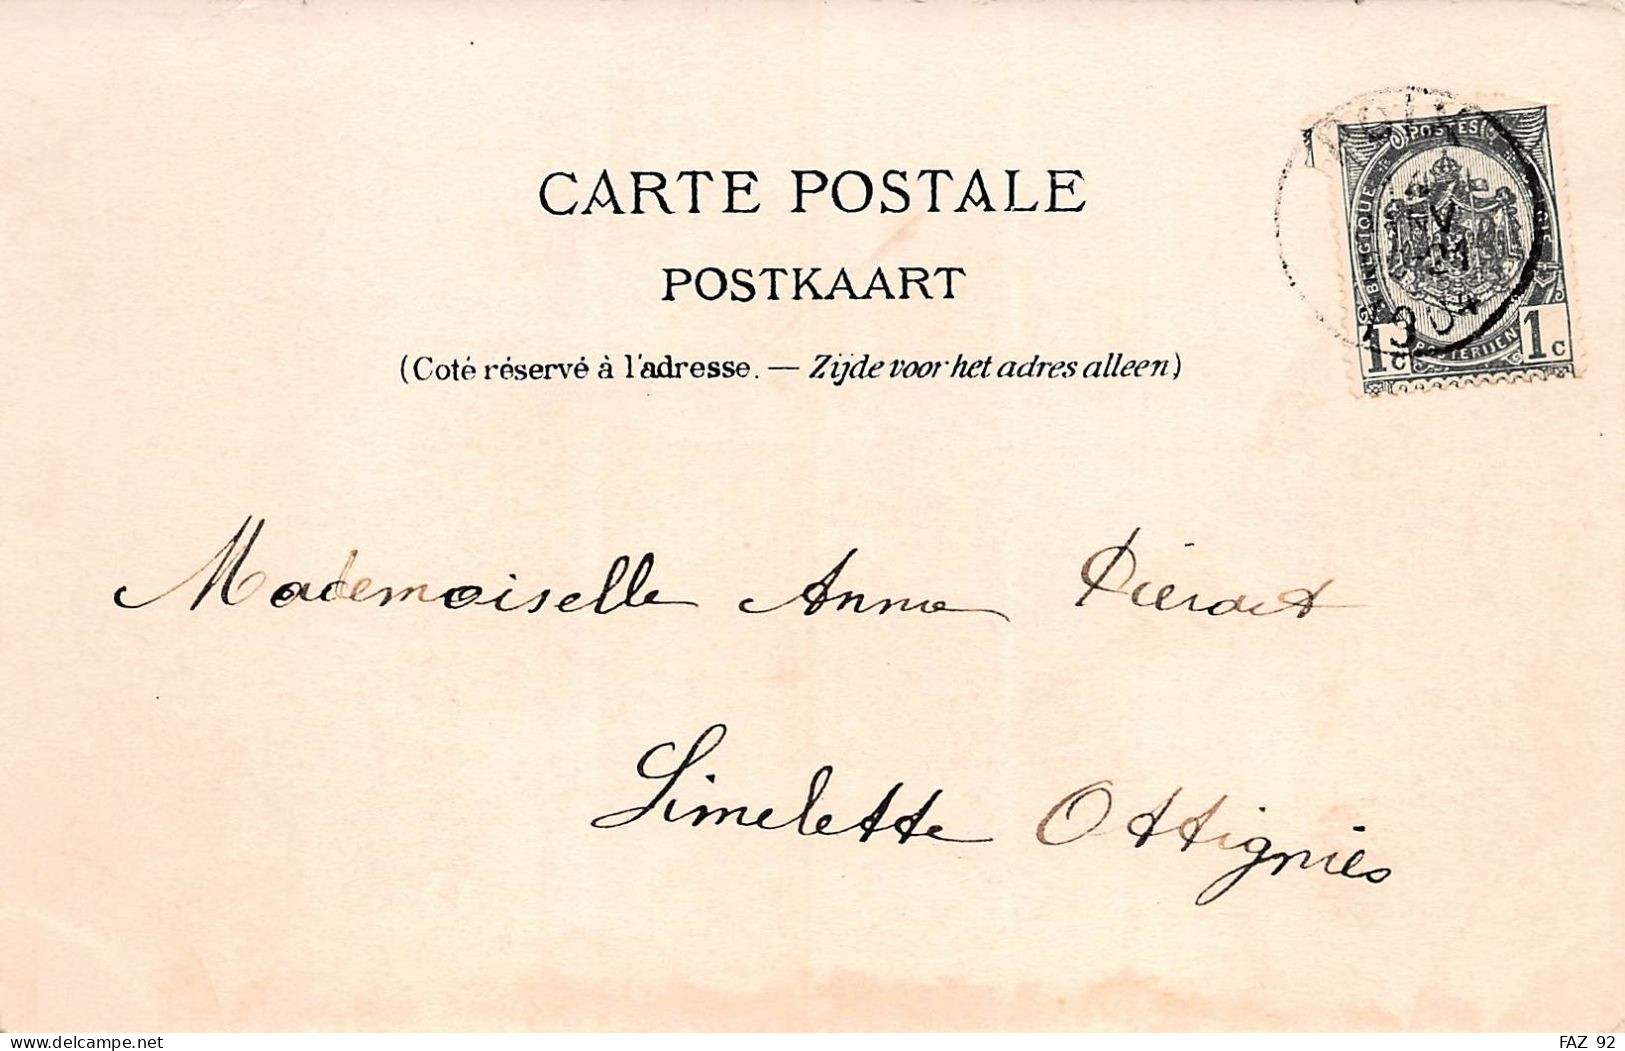 CARTE POSTALE
POSTKAART
(Coté réservé à l'adresse. — Zijde voor het adres alleen)
POSTES
BELGIQUE
1c 1c
POSTERIJEN
1904
Mademoiselle Anna Piérart
Limelette Ottignies
delcampe.net
FAZ 92